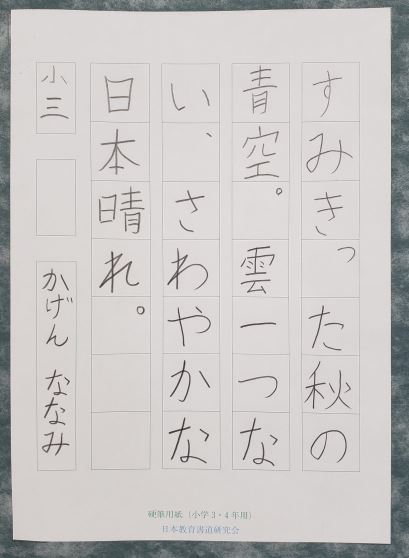 すみきった秋の
青空。雲一つな
い、さわやかな
日本晴れ。
小三
かげん ななみ
硬筆用紙（小学3・4年用）
日本教育書道研究会